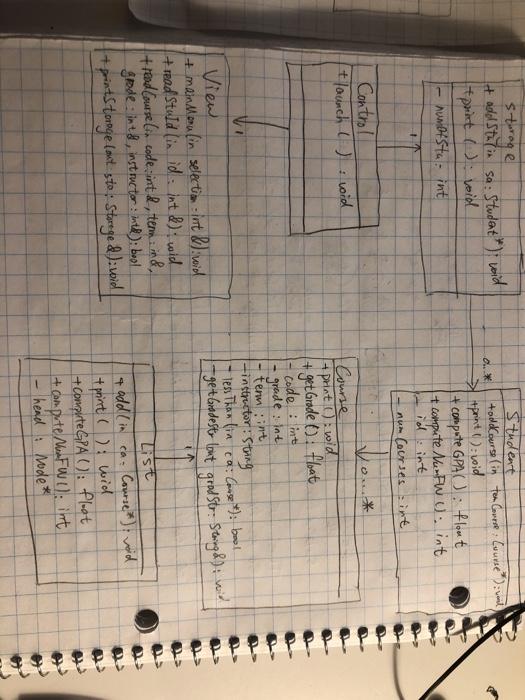 Storage
+ addStu(in sa: Student*): void
+ print( ): void
- numOfStu: int
1
0..*
Student
+addCourse in tou Course: Course*): void
+print( ): void
+ computeGPA( ): float
+ compute NumFW( ): int
- id: int
- numCourses: int
Control
+ launch ( ): void
1
0...*
View
+ mainMenu(in selection: int &): void
+ readStuId (in id: int &): void
+ readCourse(in code: int &, term: int &,
grade: int &, instructor: int &): bool
+ printStorage(out sto: Storage &): void
Course
+ print( ): void
+ getGrade( ): float
- code: int
- grade: int
- term: int
- instructor: String
- lessThan (in ca: Course*): bool
- getGradeStr(out gradStr: String &): void
1
List
+ add(in ca: Course*): void
+ print( ): void
+ computeGPA( ): float
+ compute NumFW( ): int
- head: Node*